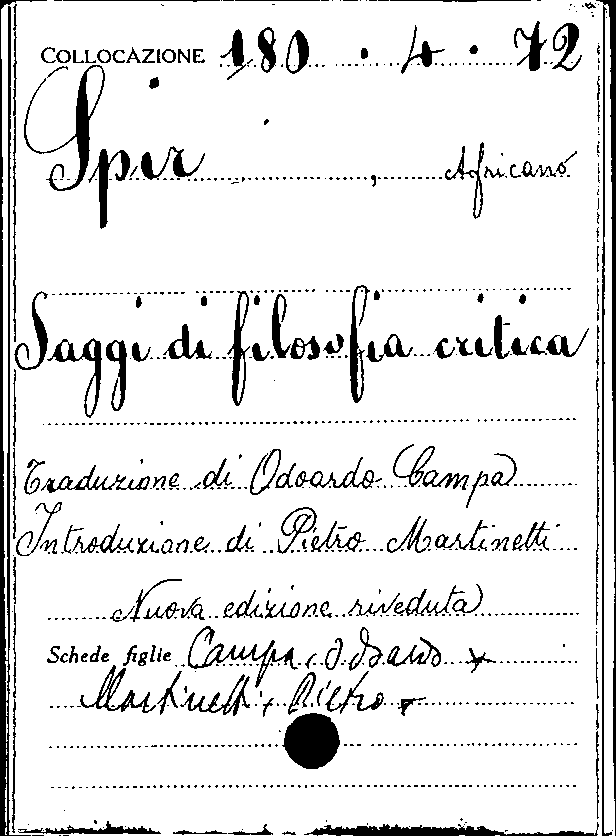 COLLOCAZIONE 180 . 4 . 72
Spir , Africano
Saggi di filosofia critica
Traduzione di Odoardo Campa
Introduzione di Pietro Martinetti
Nuova edizione riveduta
Schede figlie Campa, Odoardo x
Martinetti, Pietro